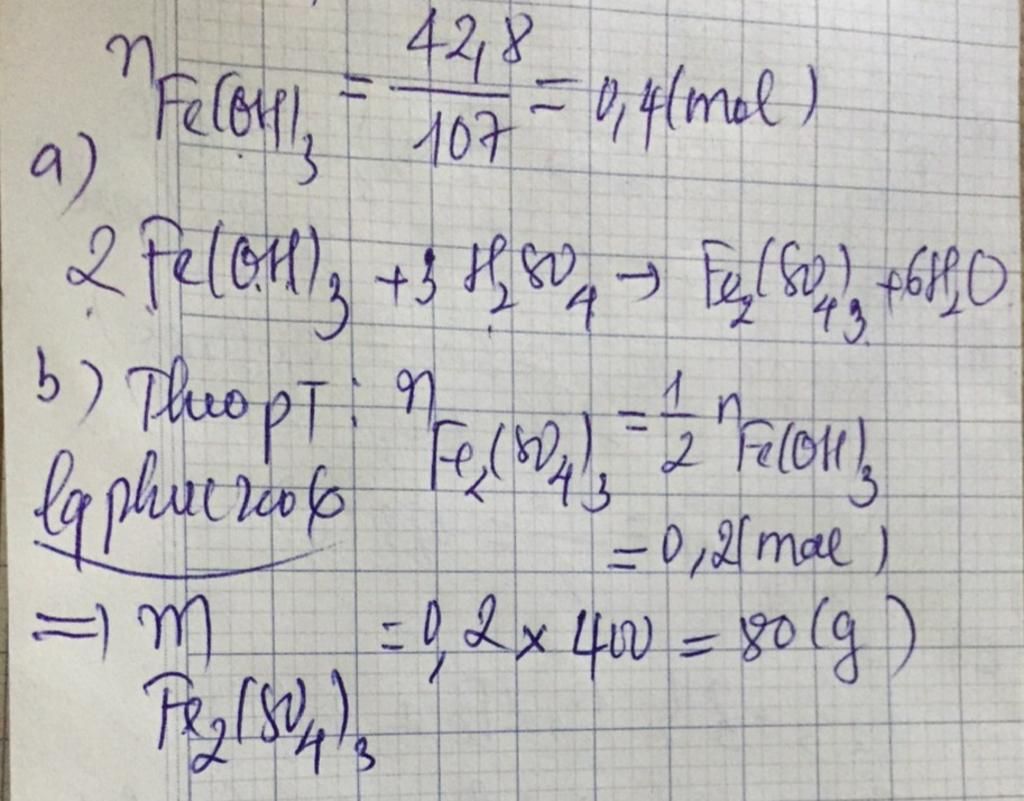 n Fe(OH)₃ = 42,8 / 107 = 0,4 (mol)
a)
2 Fe(OH)₃ + 3 H₂SO₄ → Fe₂(SO₄)₃ + 6H₂O
b) Theo PT : n Fe₂(SO₄)₃ = 1/2 n Fe(OH)₃
= 0,2 (mol)
=> m Fe₂(SO₄)₃ = 0,2 × 400 = 80 (g)